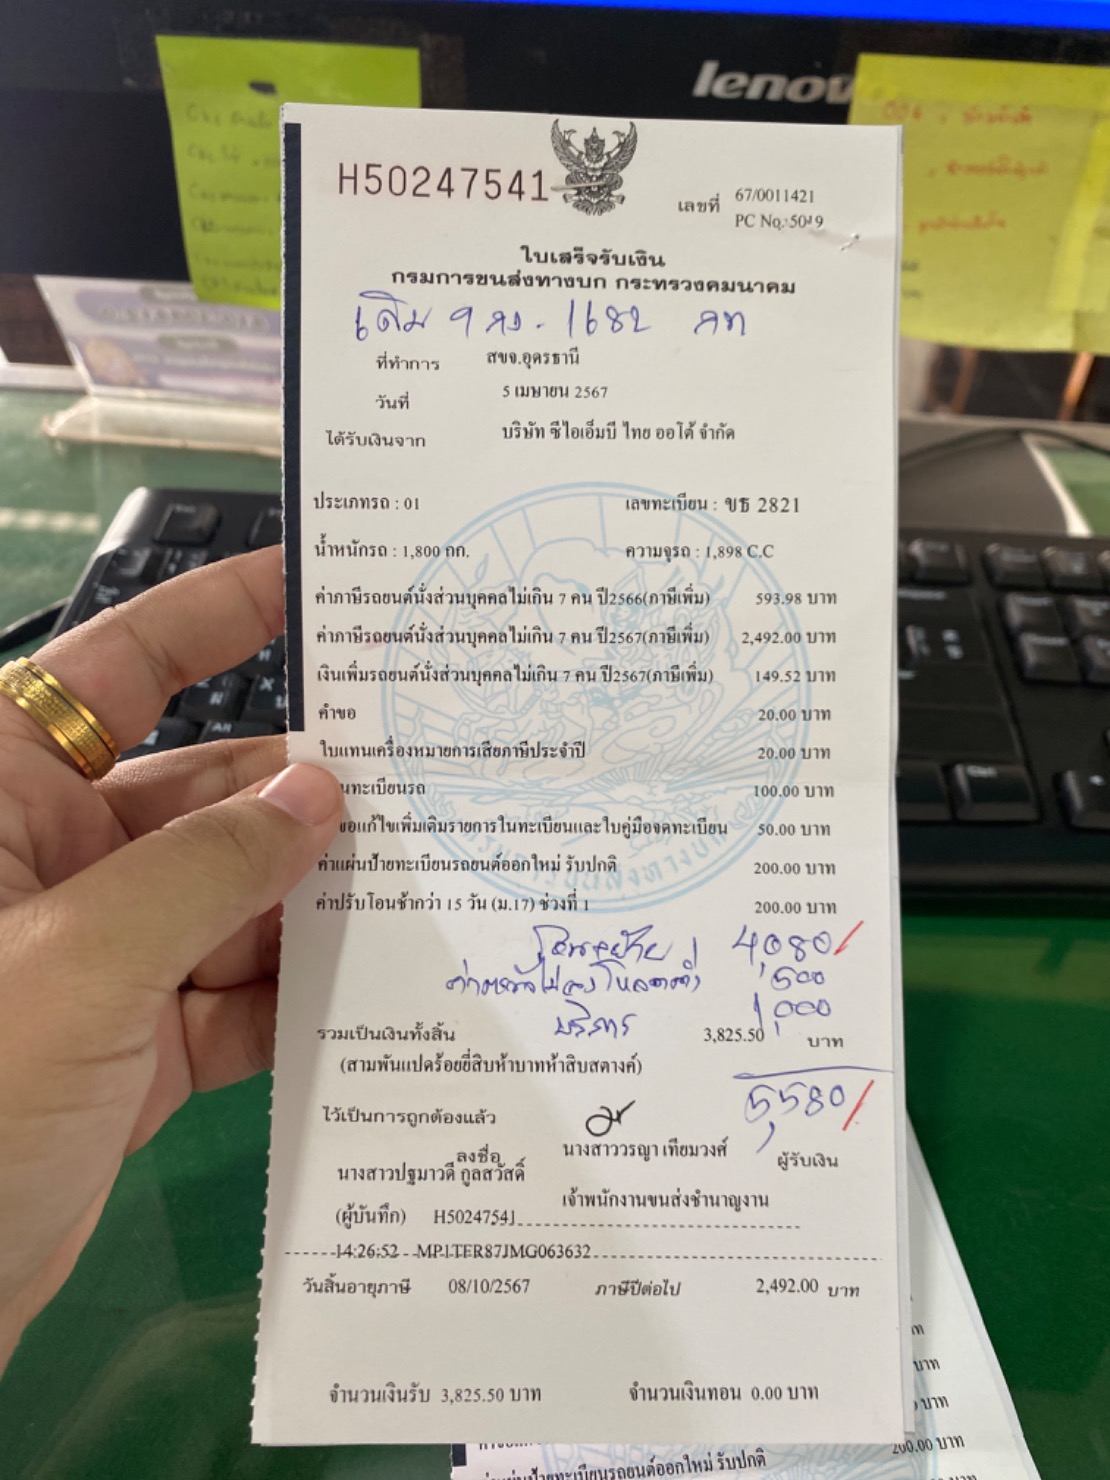 lenovo
H50247541
เลขที่ 67/0011421
PC No.:5019
ใบเสร็จรับเงิน
กรมการขนส่งทางบก กระทรวงคมนาคม
เดิม 9 กง - 1682 กท
ที่ทำการ สขจ.อุดรธานี
วันที่ 5 เมษายน 2567
ได้รับเงินจาก บริษัท ซีไอเอ็มบี ไทย ออโต้ จำกัด
ประเภทรถ : 01 เลขทะเบียน : ขธ 2821
น้ำหนักรถ : 1,800 กก. ความจุรถ : 1,898 C.C
ค่าภาษีรถยนต์นั่งส่วนบุคคลไม่เกิน 7 คน ปี2566(ภาษีเพิ่ม) 593.98 บาท
ค่าภาษีรถยนต์นั่งส่วนบุคคลไม่เกิน 7 คน ปี2567(ภาษีเพิ่ม) 2,492.00 บาท
เงินเพิ่มรถยนต์นั่งส่วนบุคคลไม่เกิน 7 คน ปี2567(ภาษีเพิ่ม) 149.52 บาท
คำขอ 20.00 บาท
ใบแทนเครื่องหมายการเสียภาษีประจำปี 20.00 บาท
นทะเบียนรถ 100.00 บาท
ขอแก้ไขเพิ่มเติมรายการในทะเบียนและใบคู่มือจดทะเบียน 50.00 บาท
ค่าแผ่นป้ายทะเบียนรถยนต์ออกใหม่ รับปกติ 200.00 บาท
ค่าปรับโอนช้ากว่า 15 วัน (ม.17) ช่วงที่ 1 200.00 บาท
โอน+ย้าย 4,080/
500
บริการ 1,000
รวมเป็นเงินทั้งสิ้น 3,825.50 บาท
(สามพันแปดร้อยยี่สิบห้าบาทห้าสิบสตางค์)
5,580/
ไว้เป็นการถูกต้องแล้ว
ลงชื่อ นางสาววรญา เทียมวงศ์ ผู้รับเงิน
นางสาวปฐมาวดี กูลสวัสดิ์
(ผู้บันทึก) H50247541 เจ้าพนักงานขนส่งชำนาญงาน
14:26:52 MP1TFR87JMG063632
วันสิ้นอายุภาษี 08/10/2567 ภาษีปีต่อไป 2,492.00 บาท
จำนวนเงินรับ 3,825.50 บาท จำนวนเงินทอน 0.00 บาท
บาท
บาท
200.00 บาท
รถยนต์ออกใหม่ รับปกติ